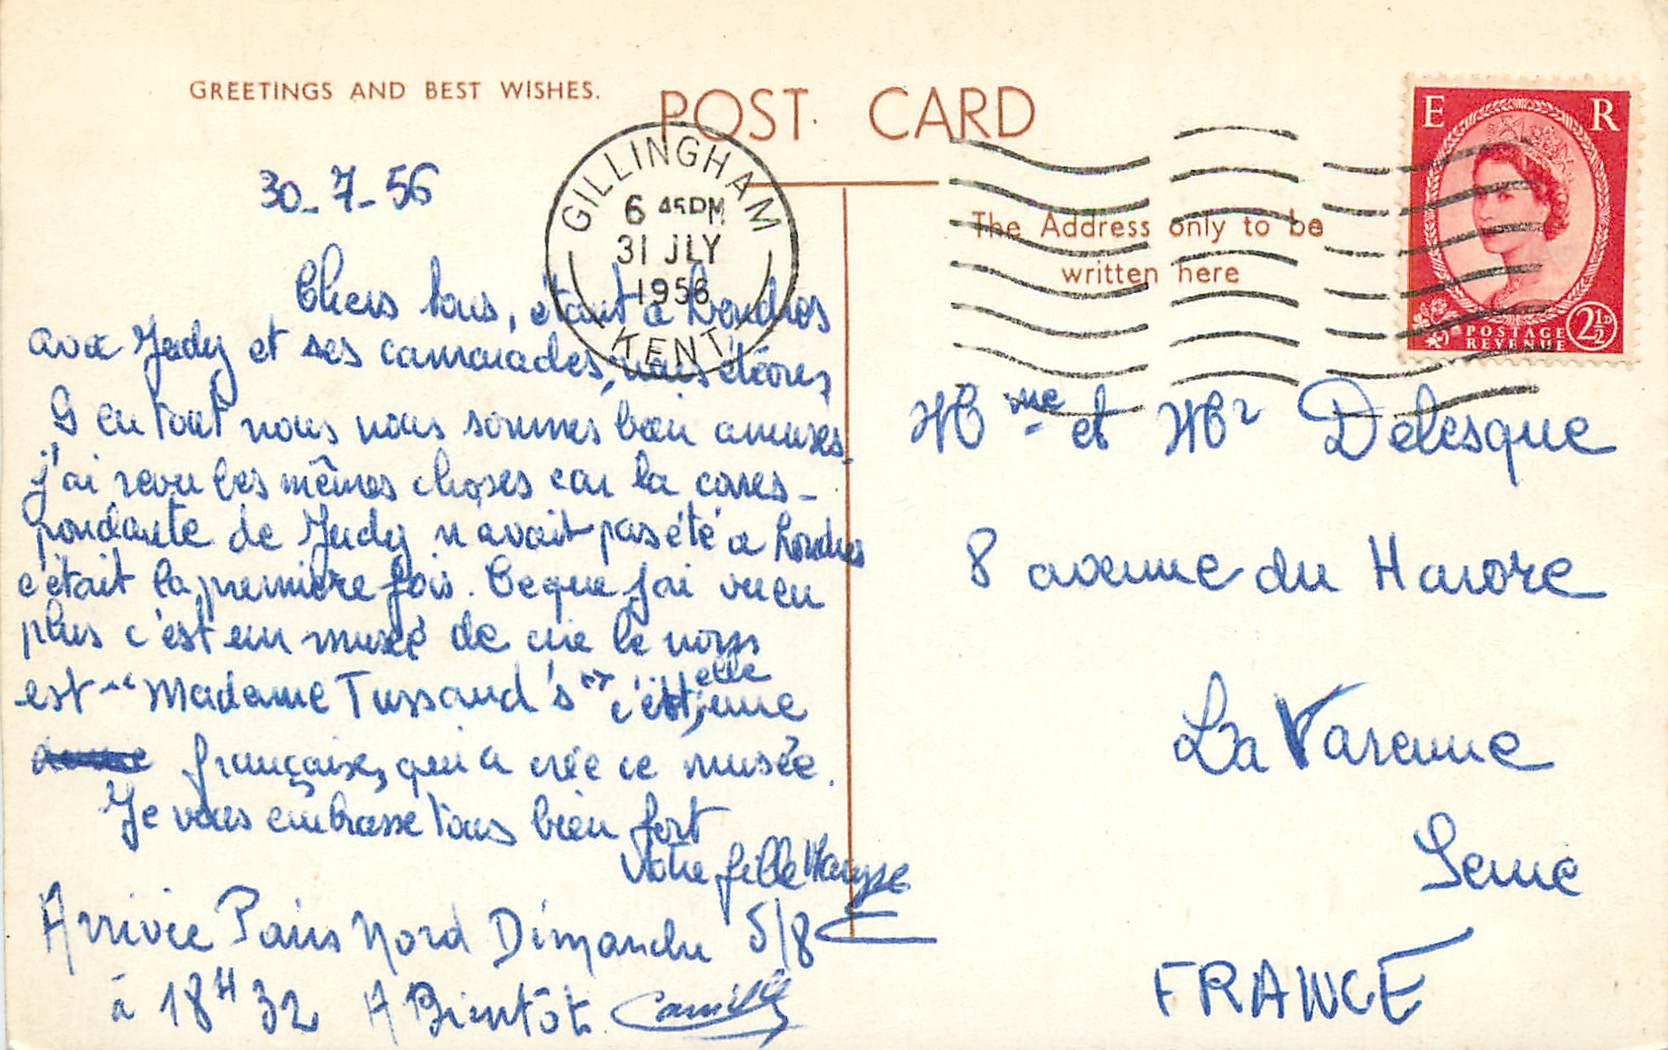 GREETINGS AND BEST WISHES.
POST CARD
30-7-56
GILLINGHAM
6 45PM
31 JLY
1956
KENT
The Address only to be
written here
E R
POSTAGE
REVENUE
2½D
Chers tous, étant à Londres
avec Judy et ses camarades, nous étions
9 en tout nous nous sommes bien amusés.
j'ai revu les mêmes choses car la corres-
pondante de Judy n'avait pas été à Londres
c'était la première fois. Ce que j'ai vu en
plus c'est un musé de cire le nom
est "Madame Tussaud's" c'est elle une
française, qui a crée ce musée.
Je vous embrasse tous bien fort
votre fille Maryse
Arrivée Paris Nord Dimanche 5/8
à 18H32 A Bientôt.
Mme et Mr Delesque
8 avenue du Havre
La Varenne
Seine
FRANCE